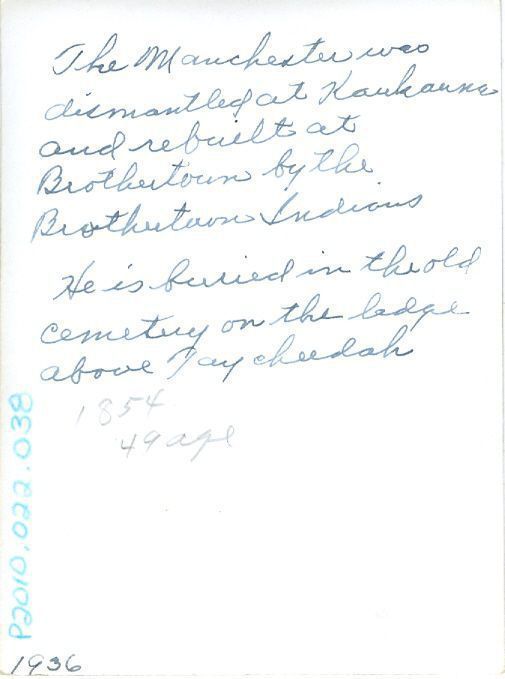 The Manchester was
dismantled at Kaukauna
and rebuilt at
Brothertown by the
Brothertown Indians
He is buried in the old
cemetery on the ledge
above Taycheedah
1854
49 age
P2010.022.038
1936